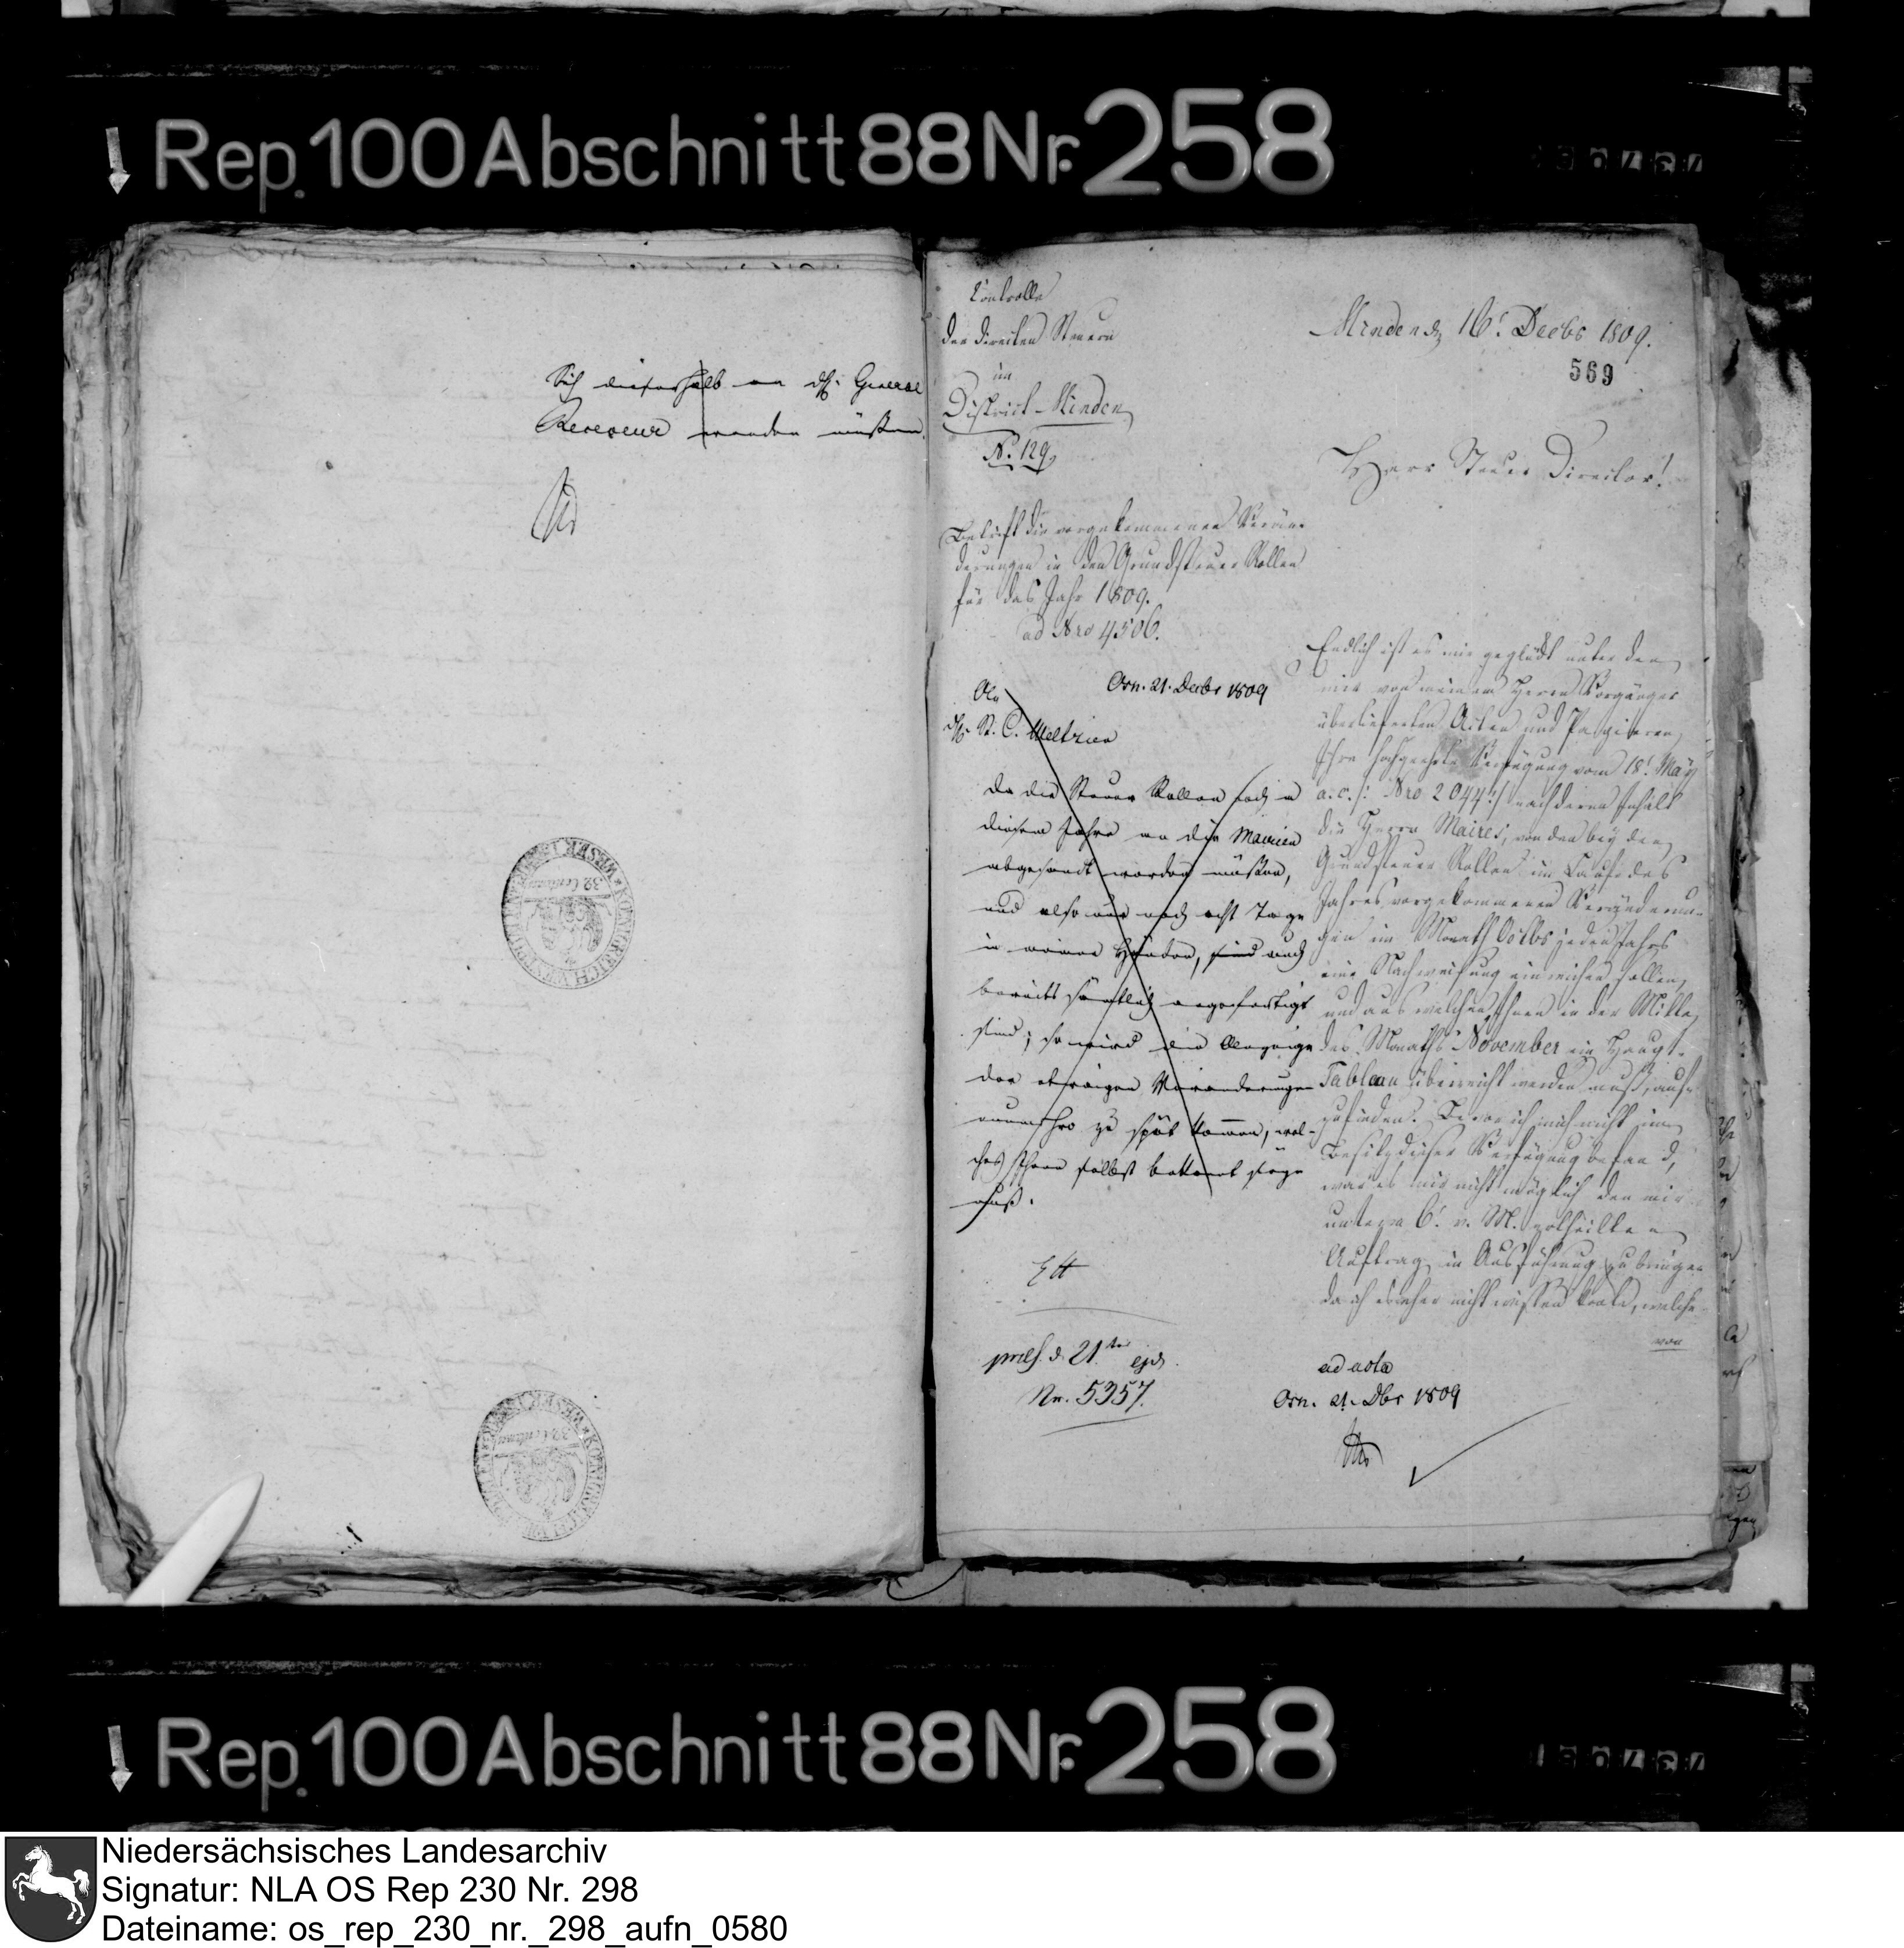 Rep. 100 Abschnitt 88 Nr. 258
Sich dieserhalb an den General
Receveur wenden müßen.
Controlle
der directen Steuern
im
District Minden
No. 129
Minden d 16t Decbr 1809.
569
Herr Steuer Director!
Betrift die vorgekommenen Verän-
derungen in den Grundsteuer Rollen
für das Jahr 1809.
ad Nro 4506.
Osn. 21. Decbr 1809
An
St. C. Meltzier
Da die Steuer Rollen noch in
diesem Jahre an die Mairien
abgesandt werden müßen,
und also nur noch acht Tage
in meinen Händen, sind auch
bereits sämtlich angefertigt
sind; so wird die Anzeige
der etwaigen Veranderungen
nunmehro zu spät kommen, wel-
ches Ihnen selbst bekannt seyn
muß.
praes. d. 21ten ejd.
Nr. 5357.
Endlich ist es mir geglückt unter den
mir von meinem Herrn Vorgänger
überlieferten Acten und Papieren
Ihre hochgeehrte Verfügung vom 18t May
a. c. /: Nro 2044 :/ nach deren Inhalt
die Herrn Maires, von den bey den
Grundsteuer Rollen im Laufe des
Jahres vorgekommenen Veränderun-
gen im Monath Octbr jeden Jahrs
eine Nachweisung einreichen sollen,
und aus welchen Ihnen in der Mitte
des Monaths November ein Haupt-
Tableau überreicht werden muß, auf-
zufinden. Bevor ich mich nicht im
Besitz dieser Verfügung befand,
war es mir nicht möglich den mir
unterm 6t v. M. ertheilten
Auftrag in Ausführung zu bringen
da ich vorher nicht wissen konte, welche
von
ad acta
Osn. 21. Dbr 1809
Rep. 100 Abschnitt 88 Nr. 258
Niedersächsisches Landesarchiv
Signatur: NLA OS Rep 230 Nr. 298
Dateiname: os_rep_230_nr._298_aufn_0580